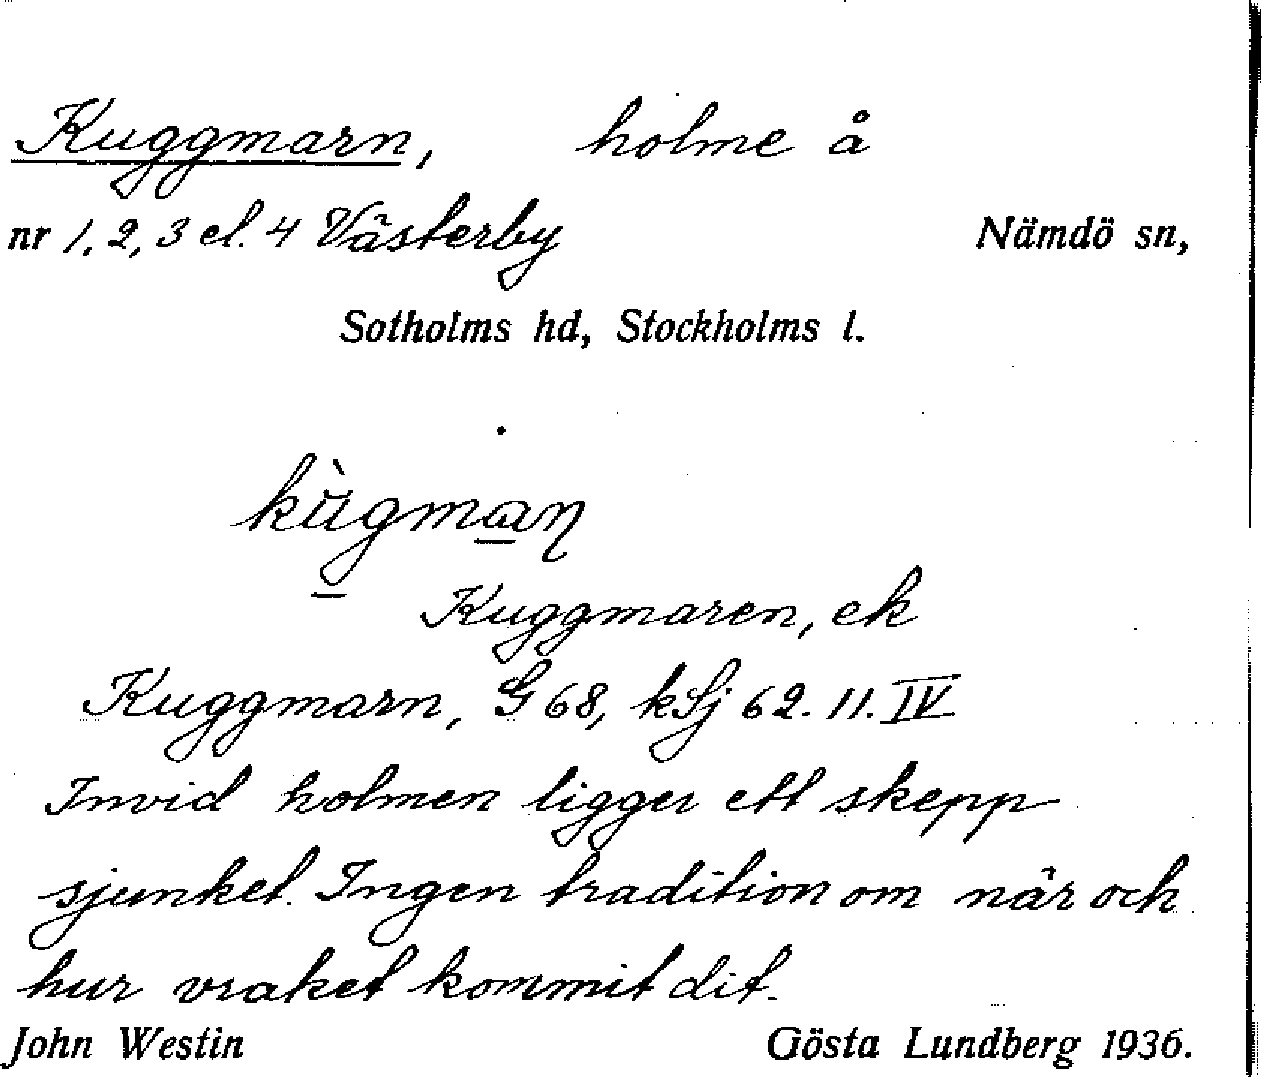 Kuggmarn, holme å
nr 1, 2, 3 el. 4 Västerby Nämdö sn,
Sotholms hd, Stockholms l.
kùgmaɳ
Kuggmaren, ek
Kuggmarn, G 68, kSj 62. 11. IV
Invid holmen ligger ett skepp
sjunket. Ingen tradition om när och
hur vraket kommit dit.
John Westin Gösta Lundberg 1936.